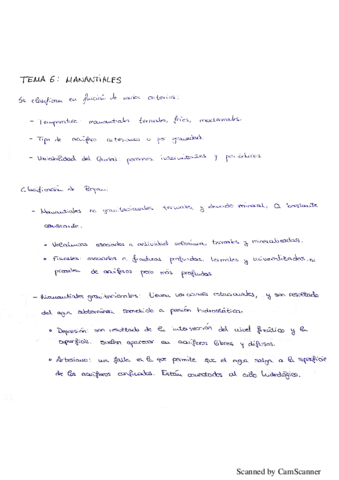 TEMA 6: MANANTIALES
Se clasifican en función de varios criterios:
- Temperatura: manantiales termales, fríos, mesotermales.
- Tipo de acuífero artesianos o por gravedad.
- Variabilidad del Caudal perennes, intermitentes y periódicos
Clasificación de Bryan:
- Manantiales no gravitacionales termales y elevado mineral. Q bastante
constante.
• Volcánicos asociados a actividad volcánica termales y mineralizadas.
• Fisurales: asociados a fracturas profundas. termales y mineralizadas o
de acuíferos pero más profundas
- Manantiales gravitacionales: Tienen variaciones estacionales, y son resultado
del agua subterránea sometida a presión hidrostática.
• Depresión: son resultado de la intersección del nivel freático y la
superficie. Suelen aparecer en acuíferos libres y difusos.
• Artesianos: una falla es la que permite que el agua salga a la superficie
de los acuíferos confinados. Están conectados al ciclo hidrológico.
Scanned by CamScanner